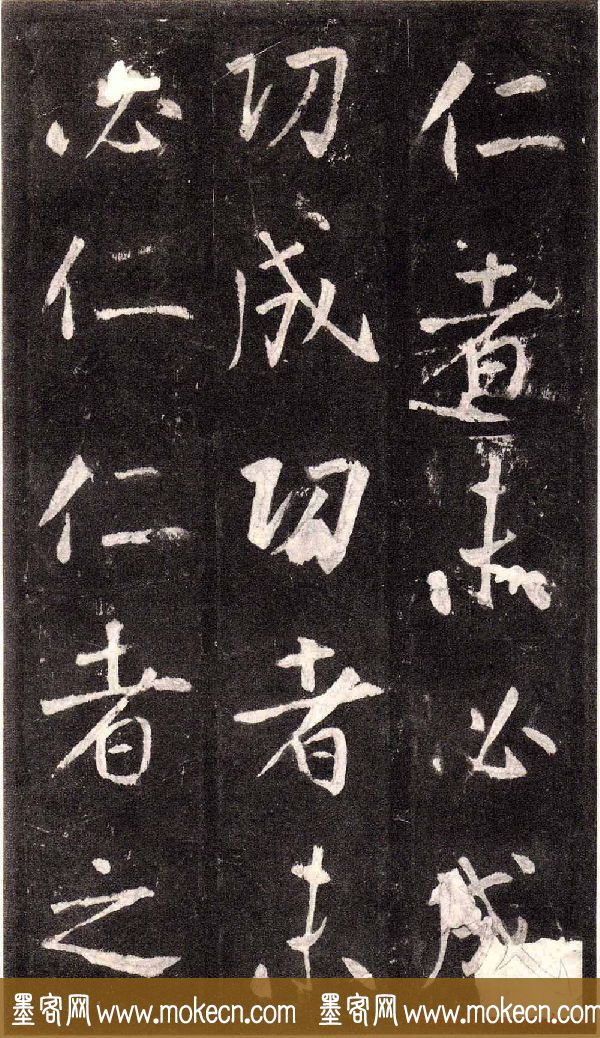 仁者未必成
功成功者未
必仁仁者之
墨客网 www.mokecn.com 墨客网 www.mokecn.com